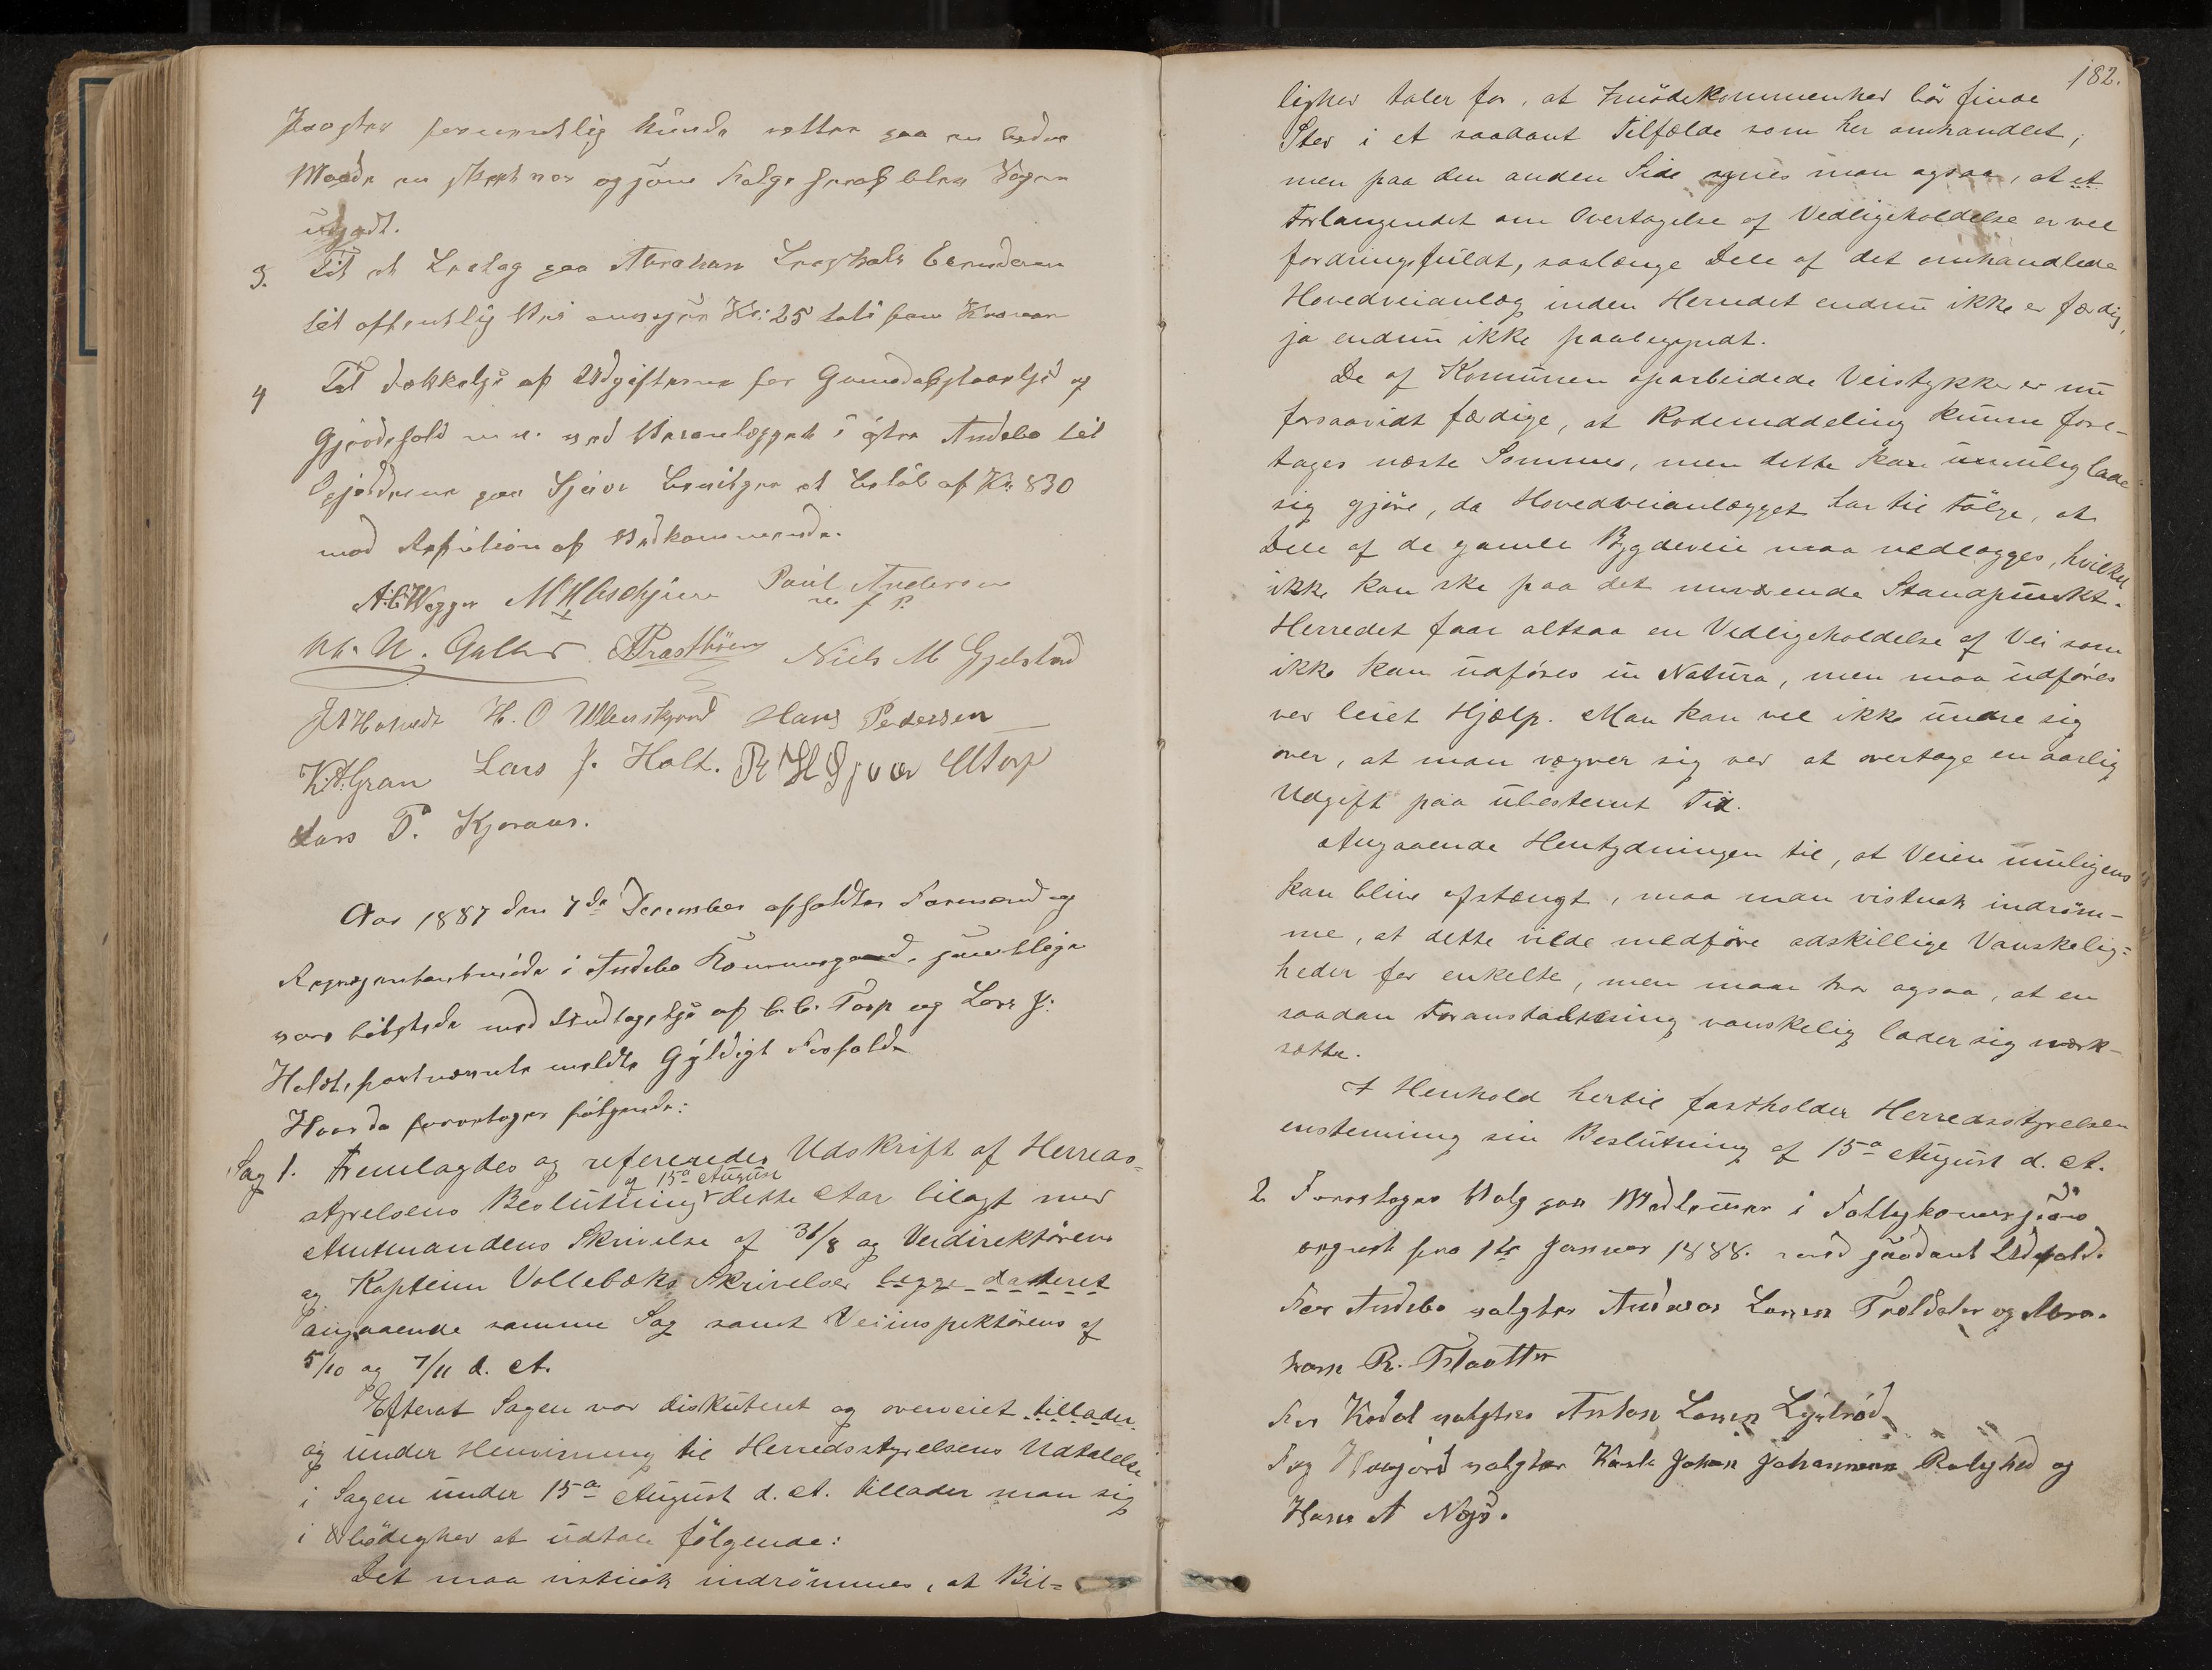 kunde rettes paa en bedre
Maade en skeet var og som Følge heraf blev Vogn
udgadt.
3. Til et Indtag paa Abraham
til offentlig Vei Kr: 25 tyve fem Kroner
4 Til Dækkelse af Udgifterne for Grundafstaaelse og
Gjerdehold m. v. ved Veianlægget i østre Andebo til
Opsidderne paa Gjever bevilges et Beløb af Kr 830
mod Refusion af Vedkommende.
Paul Anderson
m f P.
Niels M Gjelstad
H. O Ulleviskjærd Hans Pedersen
K. A. Gran Lars J. Holt.
Lars P. Kjeraas.
Aar 1887 den 7de December afholdtes Formænd og
Repræsentantmøde i Andebo Kommunegaard, samtlige
vare tilstede med Undtagelse af C. C. Torp og Lars J.
Holdt, fortnævnte meldte Gyldigt Forfald.
Hvor da foretoges følgende:
Sag 1. Fremlagdes og refereredes Udskrift af Herreds-
af 15de August
styrelsens Beslutning dette Aar bilagt med
Amtmandens Skrivelse af 31/8 og Veidirektørens
og Kaptein Vollebæks Skrivelser begge dateret
angaaende samme Sag samt Veiinspektørens af
5/10 og 7/11 d. A.
Efterat Sagen var diskuteret og overveiet tillader
og under Henvisning til Herredsstyrelsens Udtalelse
i Sagen under 15de August d. A. tillader man sig
i Ærbødighed at udtale følgende:
Det maa vistnok indrømmes, at Bil-
182.
lighed taler for, at Imødekommenhed bør finde
Sted i et saadant Tilfælde som her omhandlet,
men paa den anden Side synes man ogsaa, at et
Forlangendet om Overtagelse af Vedligeholdelse er vel
fordringsfuldt, saalænge Dele af det omhandlede
Hovedveianlæg inden Herredet endnu ikke er færdig,
ja endnu ikke paabegyndt.
De af Komunen oparbeidede Veistykker er nu
forsaavidt færdige, at Rodeinddeling kunne fore-
tages næste Sommer, men dette kan umulig lade
sig gjøre, da Hovedveianlægget har til Følge, at
Dele af de gamle Bygdeveie maa nedlægges, hvilket
ikke kan ske paa det nuværende Standpunkt.
Herredet faar altsaa en Vedligeholdelse af Vei som
ikke kan udføres in Natura, men maa udføres
ved leiet Hjælp. Man kan vel ikke undre sig
over, at man vægrer sig ved at overtage en aarlig
Udgift paa ubestemt Tid.
Angaaende Hentydningen til, at Veien muligens
kan blive afstængt, maa man vistnok indrøm-
me, at dette vilde medføre adskillige Vanskelig-
heder for enkelte, men man tror ogsaa, at en
saadan Foranstaltning vanskelig lader sig værk-
sætte.
I Henhold hertil fastholder Herredsstyrelsen
enstemmig sin Beslutning af 15de August d. A.
2 Foretoges Valg paa Medlemmer i Fattigkommisjon
regnet fra 1ste Januar 1888. med saadant Udfald.
For Andebo valgtes Andreas Larsen Trolddalen og Abra-
ham R. Flaatten
For Kodal valgtes Anton Larsen
For Høijord valgtes Karl Johan Johannesen Rolighed og
Hans A Nøis.